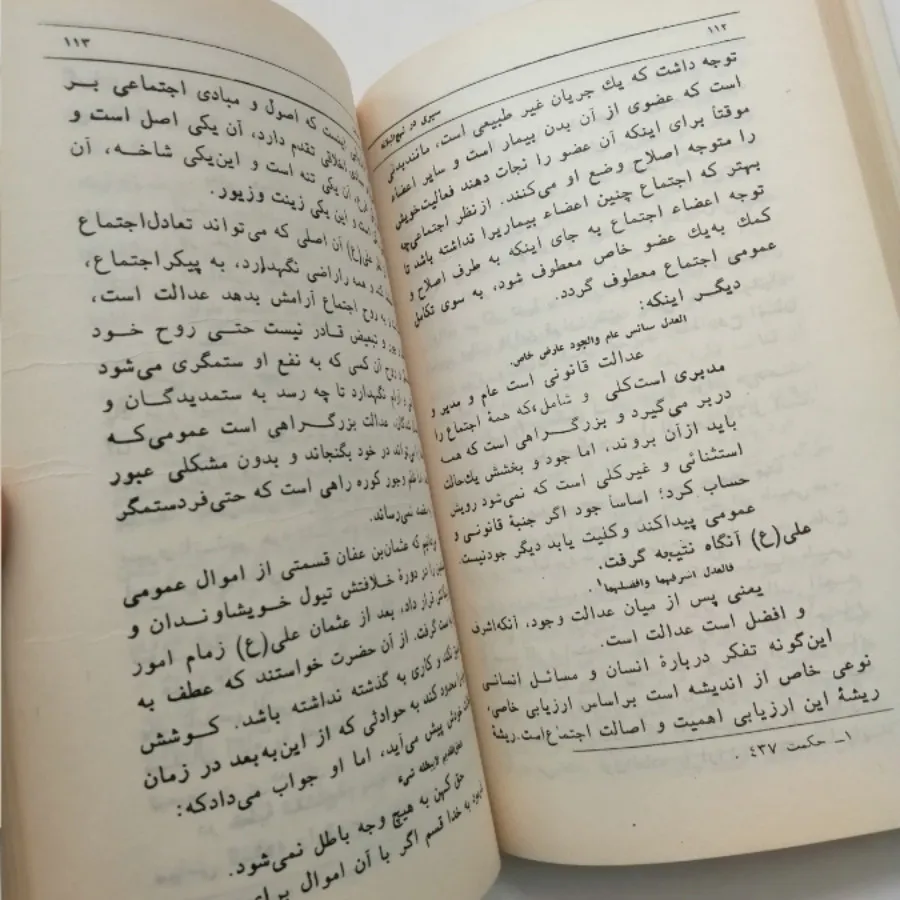 ۱۱۲
سیری در نهج‌البلاغه
توجه داشت که یك جریان غیر طبیعی است، مانندبدنی
است که عضوی از آن بدن بیمار است و سایر اعضاء
موقتاً برای اینکه آن عضو را نجات دهند فعالیت‌خویش
را متوجه اصلاح وضع او می‌کنند. ازنظر اجتماعی‌چه
بهتر که اجتماع چنین اعضاء بیماریرا نداشته باشد تا
توجه اعضاء اجتماع به جای اینکه به طرف اصلاح و
کمك به‌یك عضو خاص معطوف شود، به سوی تکامل
عمومی اجتماع معطوف گردد.
دیگر اینکه:
العدل سائس عام والجود عارض خاص.
عدالت قانونی است عام و مدیر و
مدیری است‌کلی و شامل،که همهٔ اجتماع را
دربر می‌گیرد و بزرگراهی است که همه
باید ازآن بروند، اما جود و بخشش یك‌حالت
استثنائی و غیرکلی است که نمی‌شود رویش
حساب کرد؛ اساساً جود اگر جنبهٔ قانونی و
عمومی پیداکند وکلیت یابد دیگر جودنیست.
علی(ع) آنگاه نتیجه گرفت.
فالعدل اشرفهما وافضلهما۱
یعنی پس از میان عدالت وجود، آنکه‌اشرف
و افضل است عدالت است.
این‌گونه تفکر دربارهٔ انسان و مسائل انسانی
نوعی خاص از اندیشه است براساس ارزیابی خاصی.
ریشهٔ این ارزیابی اهمیت و اصالت اجتماع‌است.ریشهٔ
۱ـ حکمت ۴۳۷ .
۱۱۳
اینست که اصول و مبادی اجتماعی بر
اخلاقی تقدم دارد، آن یکی اصل است و
آن یکی تنه است و این‌یکی شاخه، آن
است و این یکی زینت وزیور.
علی(ع) آن اصلی که می‌تواند تعادل‌اجتماع
و همه راراضی نگهدارد، به پیکراجتماع،
به روح اجتماع آرامش بدهد عدالت است،
و تبعیض قادر نیست حتی روح خود
روح آن کسی که به نفع او ستمگری می‌شود
آرام نگهدارد تا چه رسد به ستمدیدگان و
عدالت بزرگراهی است عمومی‌که
می‌تواند در خود بگنجاند و بدون مشکلی عبور
ظلم وجور کوره راهی است که حتی‌فردستمگر
نمی‌رساند.
که عثمان‌بن عفان قسمتی از اموال عمومی
را در دورهٔ خلافتش تیول خویشاوندان و
قرار داد، بعد از عثمان علی(ع) زمام امور
گرفت. از آن حضرت خواستند که عطف به
نکند و کاری به گذشته نداشته باشد. کوشش
محدود کند به حوادثی که از این‌به‌بعد در زمان
خودش پیش می‌آید، اما او جواب می‌دادکه:
لایبطله شیء
حق کهن به هیچ وجه باطل نمی‌شود.
به خدا قسم اگر با آن اموال برای